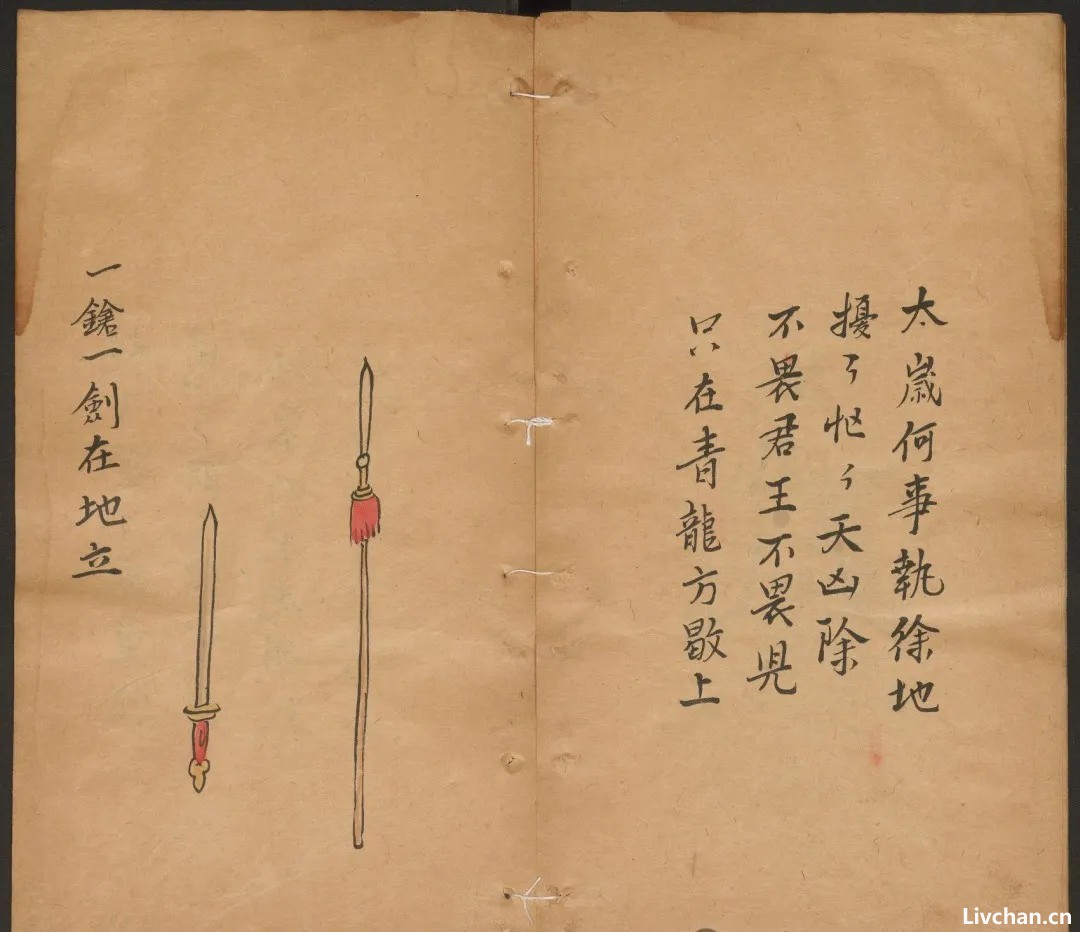 太歲何事執徐地
擾々怄々天凶除
不畏君王不畏児
只在青龍方歇上
一鎗一劍在地立
Livchan.cn